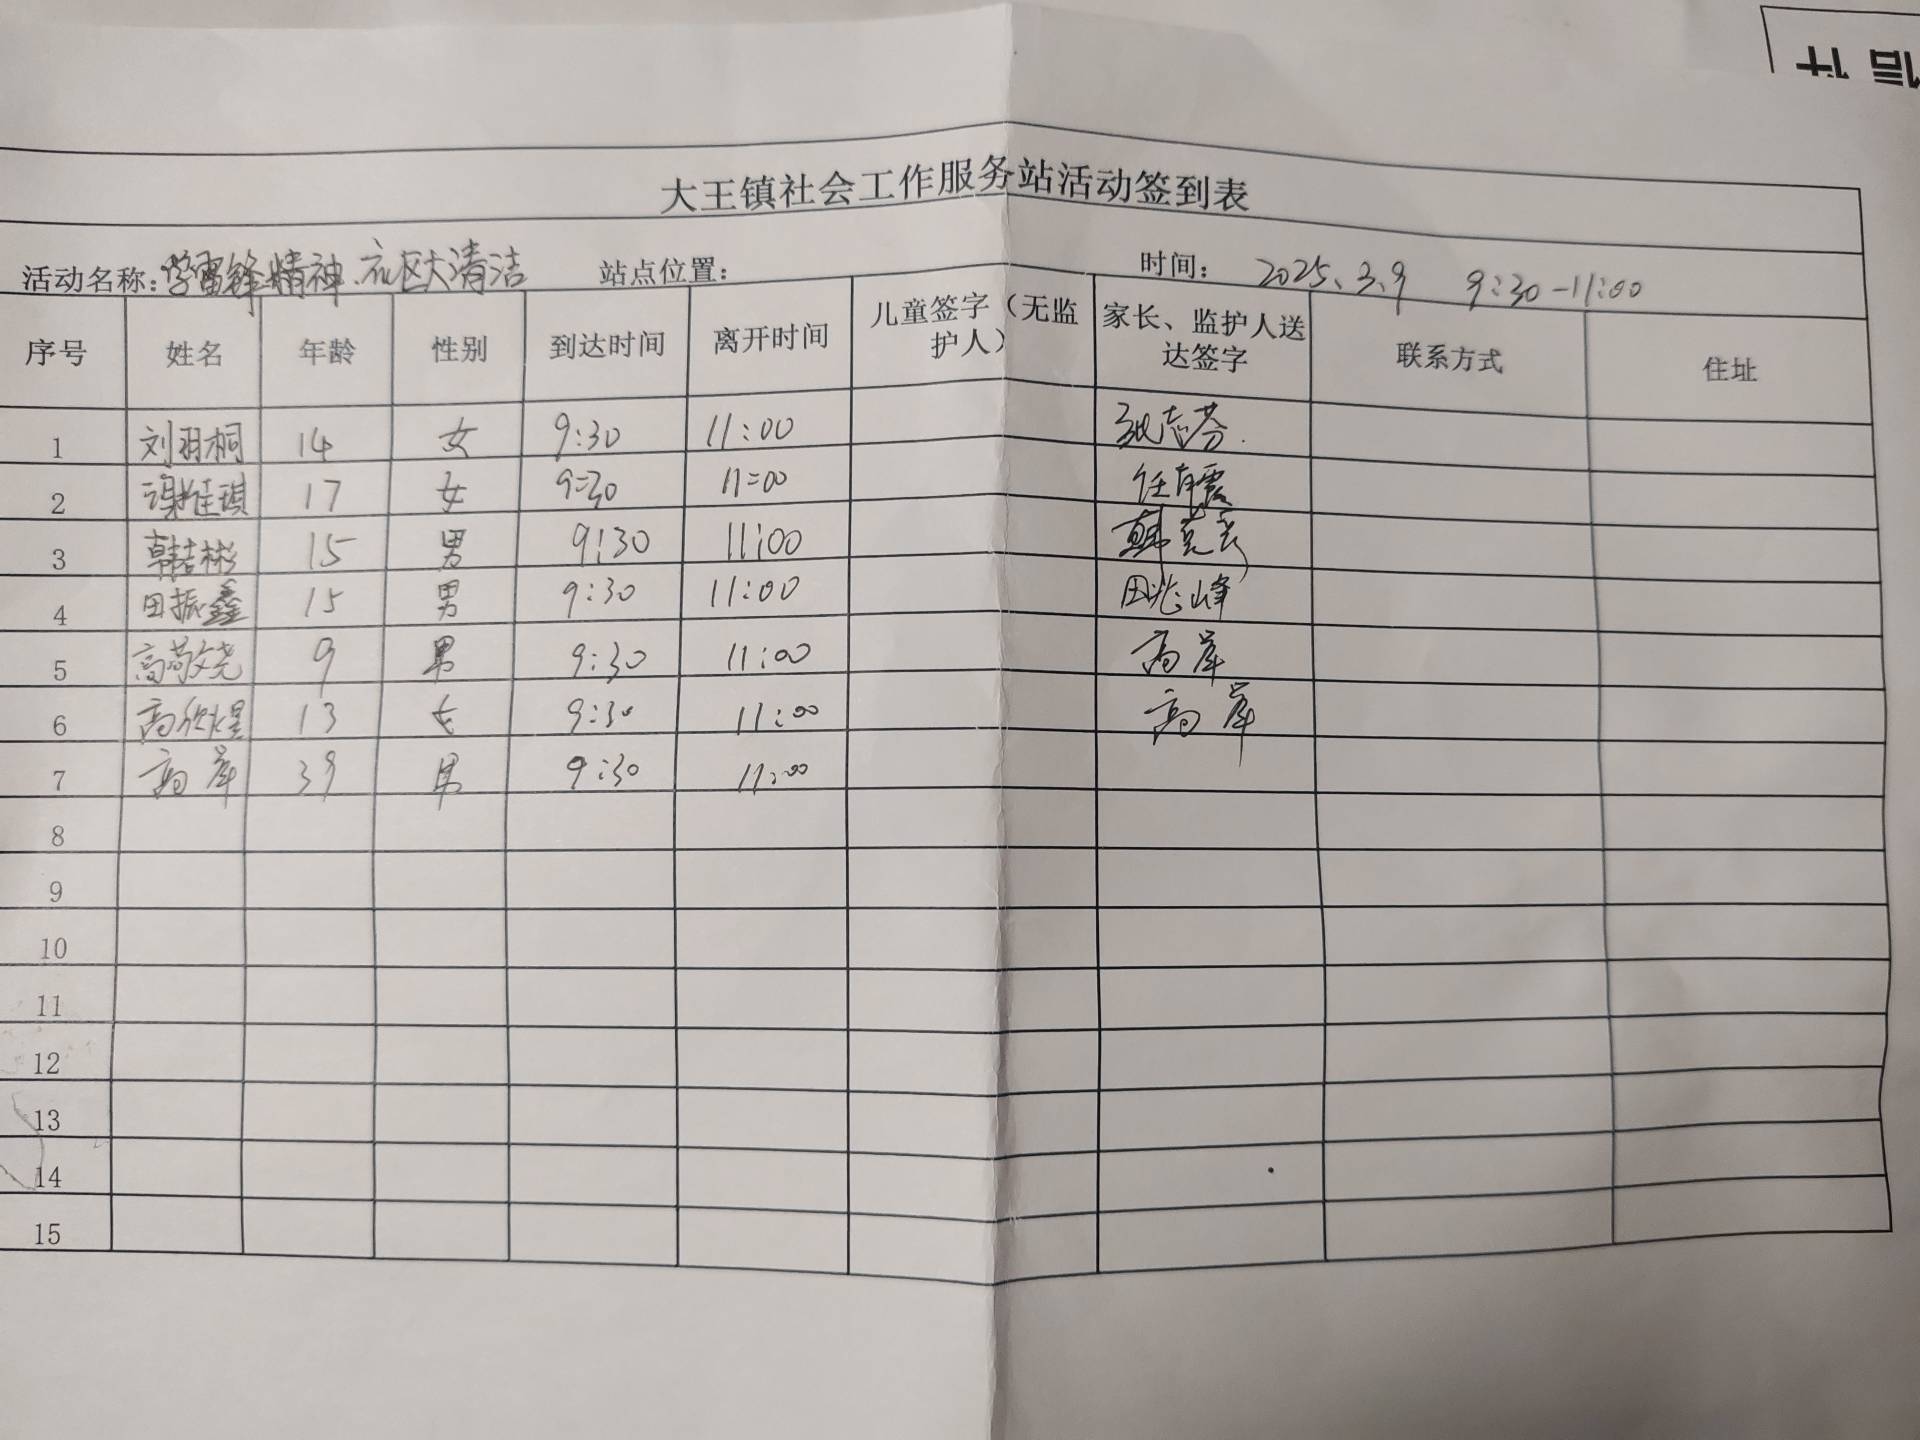 大王镇社会工作服务站活动签到表
活动名称:学雷锋精神.社区大清洁 站点位置: 时间: 2025.3.9 9:30-11:00
序号 姓名 年龄 性别 到达时间 离开时间 儿童签字(无监护人) 家长、监护人送达签字 联系方式 住址
1 刘羽桐 14 女 9:30 11:00 张志芬
2 谢佳琪 17 女 9:30 11:00
3 15 男 9:30 11:00
4 田振鑫 15 男 9:30 11:00 田兆峰
5 高敬尧 9 男 9:30 11:00 高岸
6 13 女 9:30 11:00 高岸
7 高岸 39 男 9:30 11:00
8
9
10
11
12
13
14
15